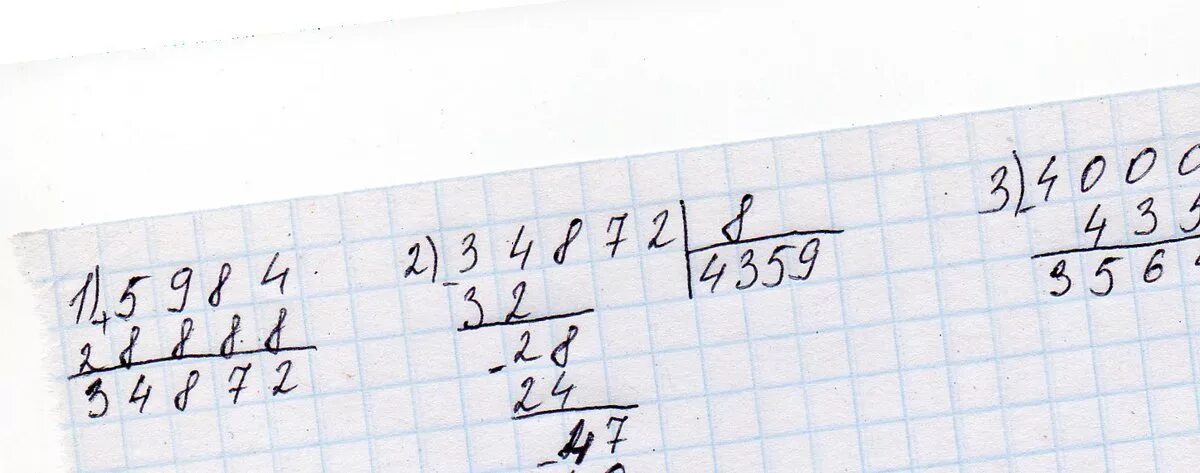 1) 5 9 8 4
+
2 8 8 8 8
3 4 8 7 2
2) - 3 4 8 7 2 | 8
3 2 | 4359
- 2 8
2 4
- 4 7
3) - 4 0 0 0
4 3 5
3 5 6